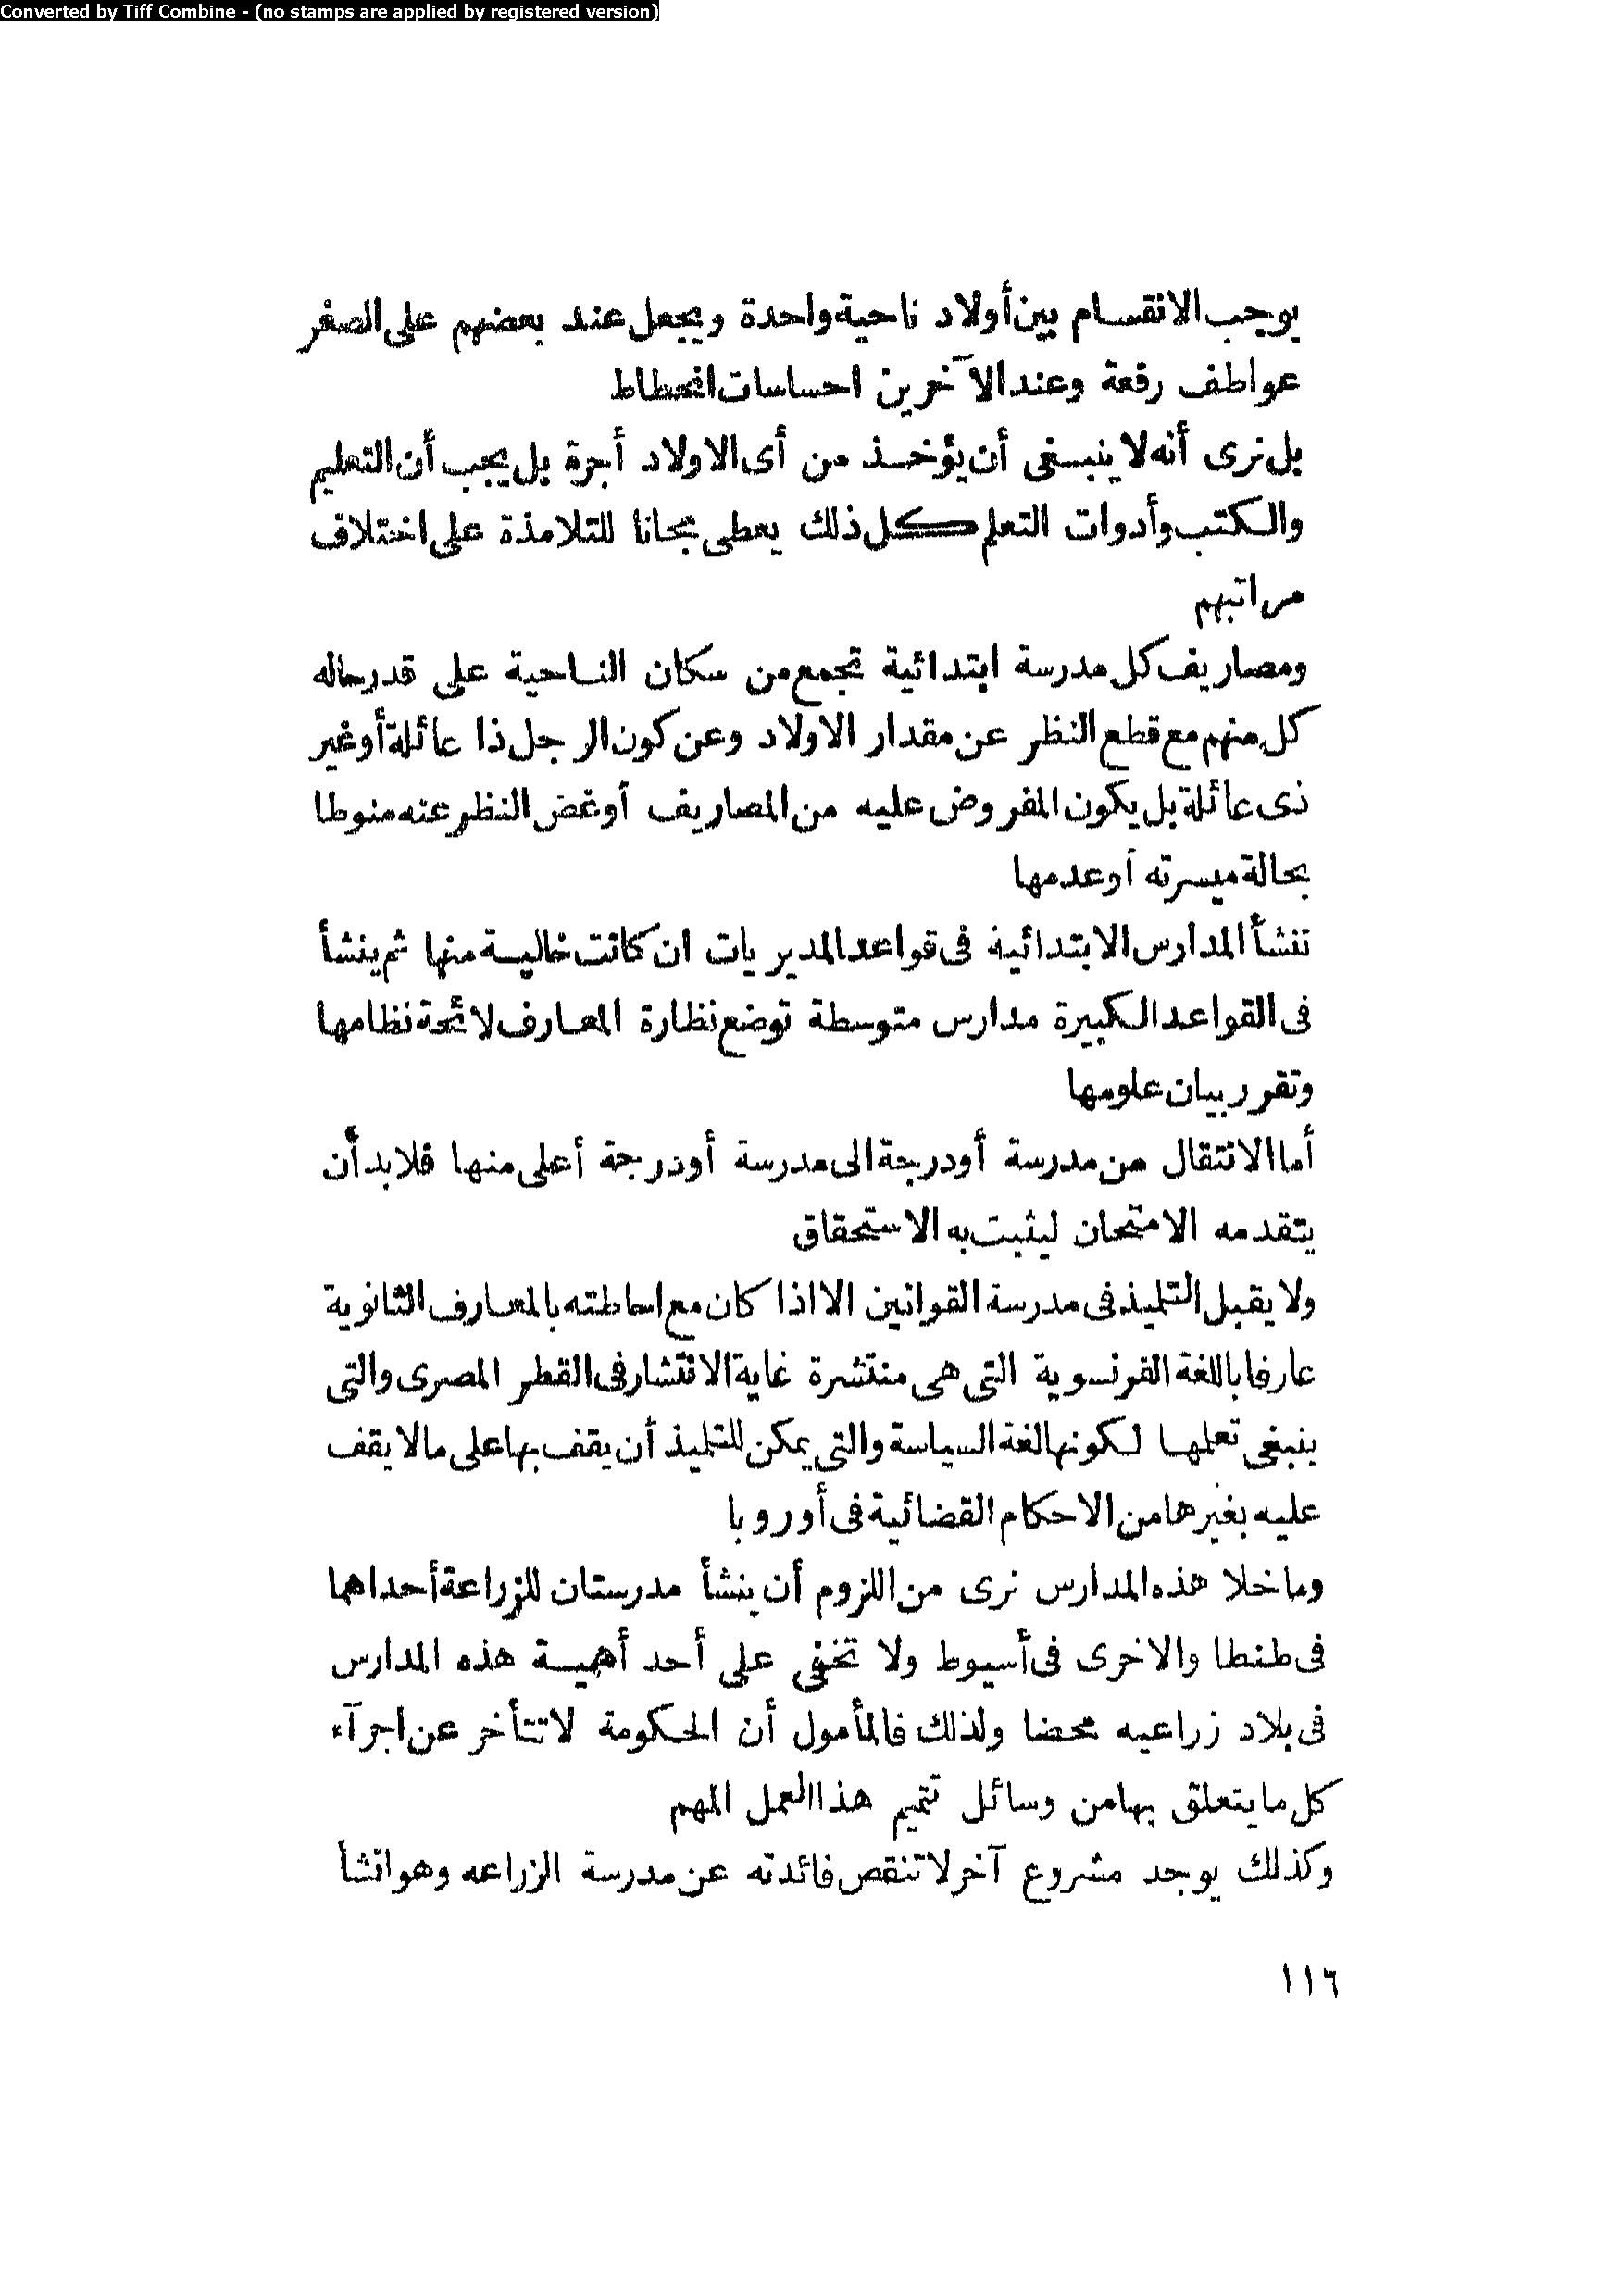 Converted by Tiff Combine - (no stamps are applied by registered version)
يوجب الانقسام بين أولاد ناحية واحدة ويجعل عند بعضهم على الصغر
عواطف رفعة وعند الآخرين احساسات انحطاط
بل نرى أنه لا ينبغى أن يؤخذ من أى الاولاد أجرة بل يجب أن التعليم
والكتب وأدوات التعلم كل ذلك يعطى مجانا للتلامذة على اختلاف
مراتبهم
ومصاريف كل مدرسة ابتدائية تجمع من سكان الناحية على قدر حاله
كل منهم مع قطع النظر عن مقدار الاولاد وعن كون الرجل ذا عائلة أو غير
ذى عائلة بل يكون المفروض عليه من المصاريف أو غض النظر عنه منوطا
بحالة ميسرته أو عدمها
تنشأ المدارس الابتدائية فى قواعد المديريات ان كانت خالية منها ثم ينشأ
فى القواعد الكبيرة مدارس متوسطة توضع نظارة المعارف لائحة نظامها
وتقرر بيان علومها
أما الانتقال من مدرسة أو درجة الى مدرسة أو درجة أعلى منها فلا بد أن
يتقدمه الامتحان ليثبت به الاستحقاق
ولا يقبل التلميذ فى مدرسة القوانين الا اذا كان مع احاطته بالمعارف الثانوية
عارفا باللغة الفرنسوية التى هى منتشرة غاية الانتشار فى القطر المصرى والتى
ينبغى تعلمها لكونها لغة السياسة والتى يمكن للتلميذ أن يقف بها على ما لا يقف
عليه بغيرها من الاحكام القضائية فى أوروبا
وما خلا هذه المدارس نرى من اللزوم أن ينشأ مدرستان للزراعة أحداهما
فى طنطا والاخرى فى أسيوط ولا تخفى على أحد أهمية هذه المدارس
فى بلاد زراعيه محضا ولذلك فالمأمول أن الحكومة لا تتأخر عن اجرآء
كل ما يتعلق بها من وسائل تتميم هذا العمل المهم
وكذلك يوجد مشروع آخر لا تنقص فائدته عن مدرسة الزراعه وهو انشأ
١١٦